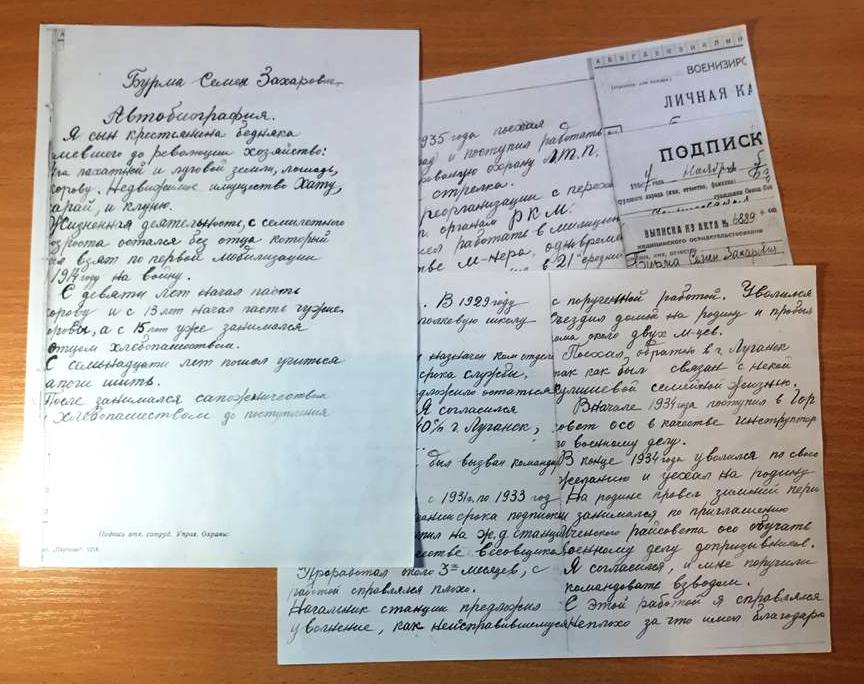 Бурма Семен Захарович
Автобиография.
Я сын крестьянина бедняка
имевшего до революции хозяйство:
пахатной и луговой земли, лошадь,
корову. Недвижимое имущество Хату,
сарай, и клуню.
Жизненная деятельность, с семилетнего
возроста остался без отца который
взят по первой мобилизации
1914 году на войну.
С девяти лет начал пасть
корову и с 13 лет начал пасть чужие
коровы, а с 15 лет уже занимался
отцом хлебопашеством.
С семьнадцати лет пошол учиться
сапоги шить.
После занимался сапожничеством
хлебопашеством до поступления
Подпись отв. сотруд. Управ. Охраны:
1935 года поехал с
и поступил работать
охрану
стрелка.
реорганизации с
органам Р К М.
работать в милиции
одновремен
в 21 средней
А Б В Г Д Е Ж З И К Л М Н
ВОЕНИЗИРО
ЛИЧНАЯ КА
ПОДПИСК
ноября
ВЫПИСКА ИЗ АКТА № 6889
медицинского освидетельствования
Бурма Семен Захарович
В 1929 году
полковую школу
назначен ком отдел
срока службы,
предложило остаться
Я согласился
г. Луганск,
был вызван команди
с 1931 г. по 1933 год
срока подписки
на ж.д. станций
весовщика
Проработал около 3-х месяцев, с
работой справлялся плохо.
Начальник станции предложил
увольнение, как неисправившемуся
с порученной работой. Уволился
съездил домой на родину и пробыл
дома около двух м-цев.
Поехал обратно в г. Луганск
так как был связан с некой
Кулишевой семейной жизнью.
Вначале 1934 года поступил в Гор
совет осо в качестве инструктор
по военному делу.
В конце 1934 года уволился по свое
желанию и уехал на родину
На родине провел зимний пери
занимался по приглашению
райсовета осо обучать
военному делу допризывников.
Я согласился, и мне поручили
командовать взводом.
С этой работой я справлялся
неплохо за что имел благодарн